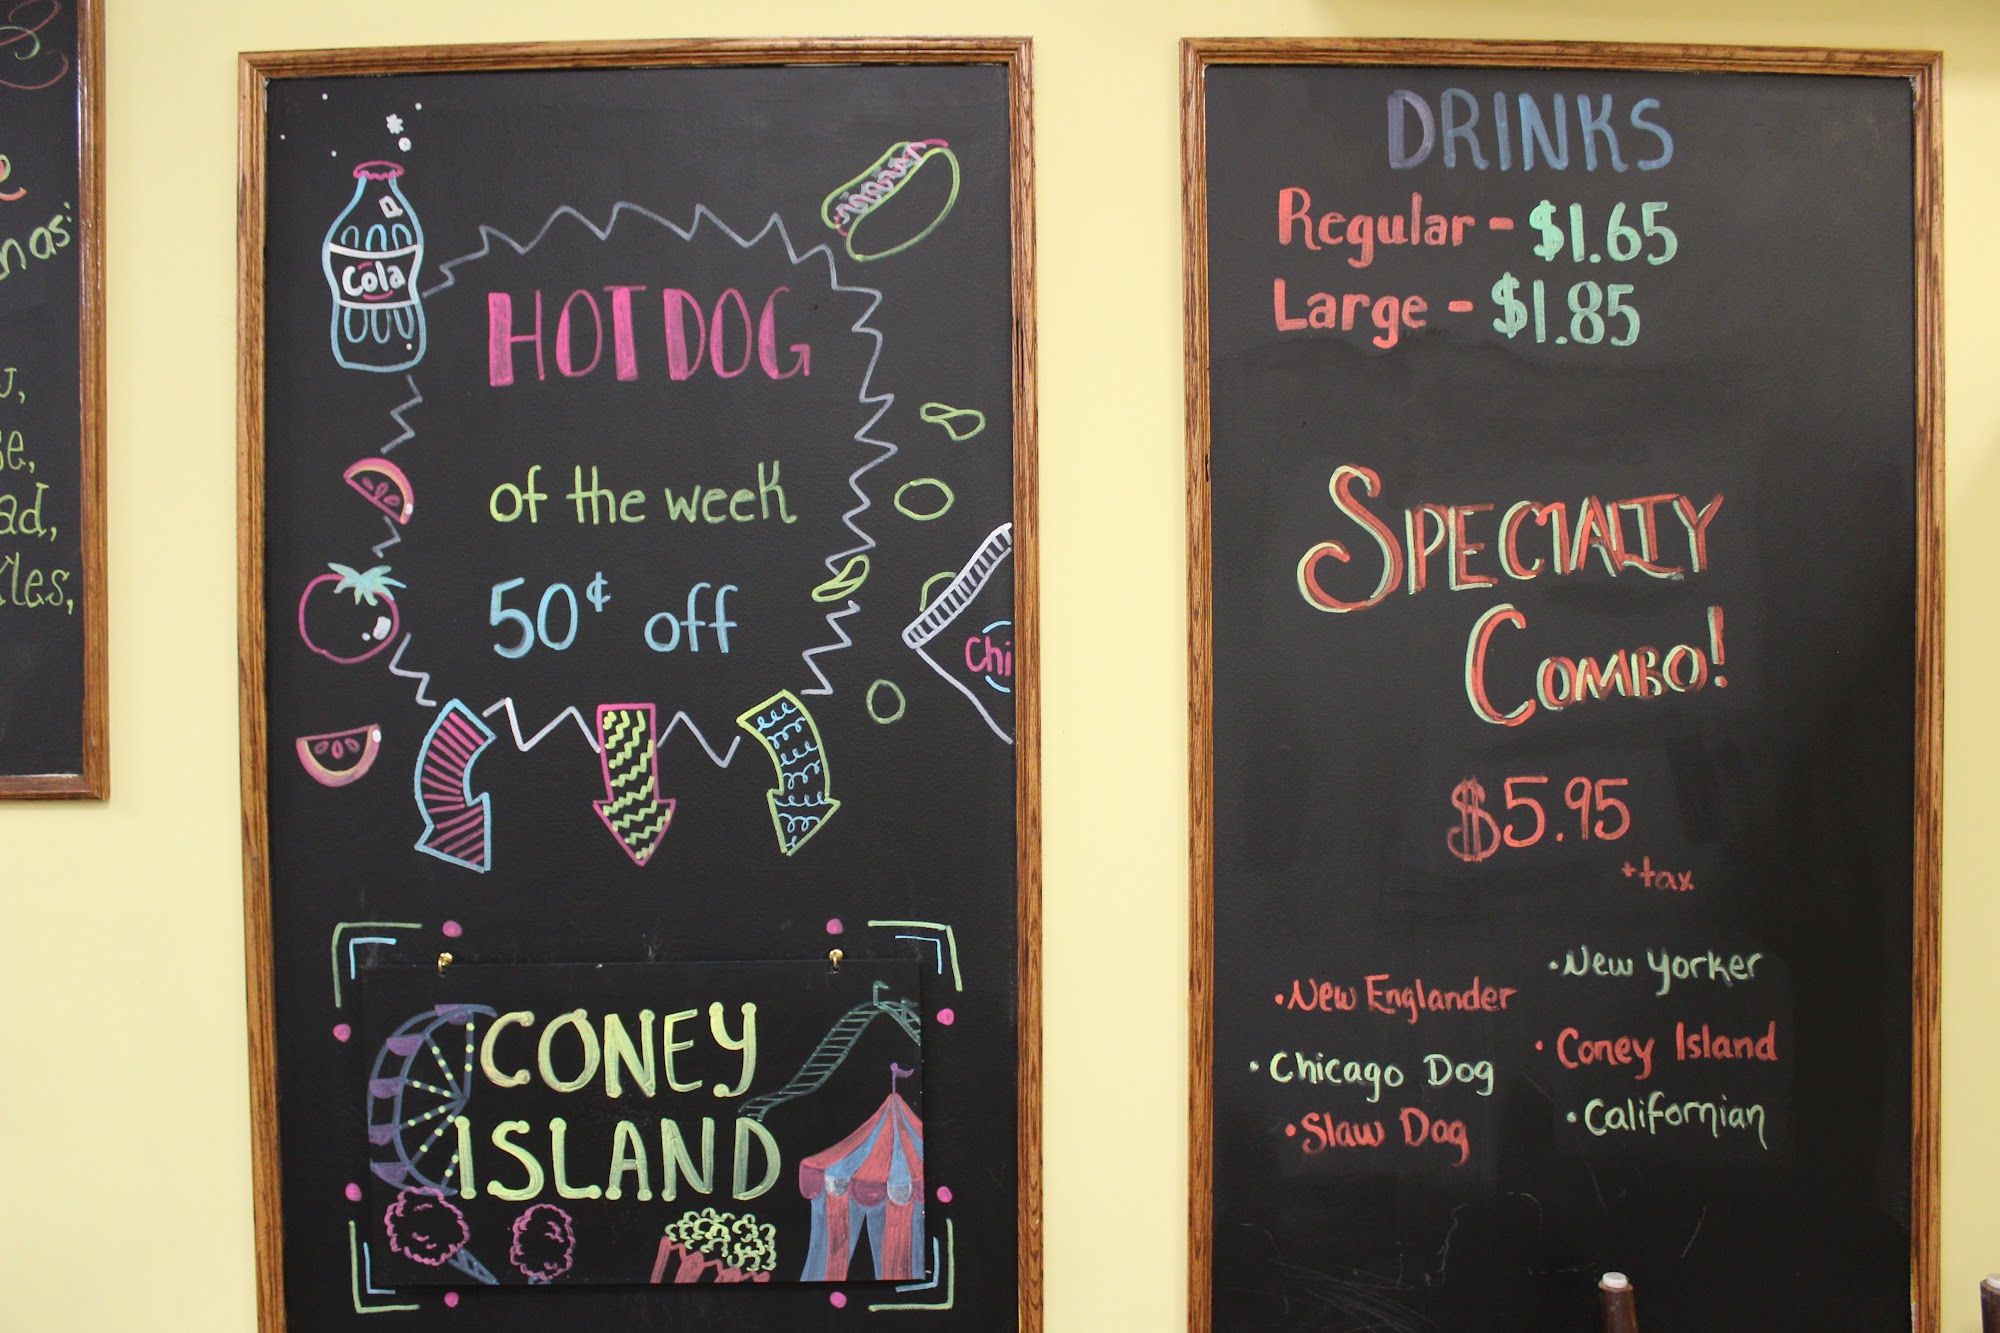 Cola
HOT DOG
of the week
50¢ off
Chi
CONEY
ISLAND
DRINKS
Regular - $1.65
Large - $1.85
SPECIALTY
COMBO!
$5.95
+tax
• New Englander
• Chicago Dog
• Slaw Dog
• New Yorker
• Coney Island
• Californian